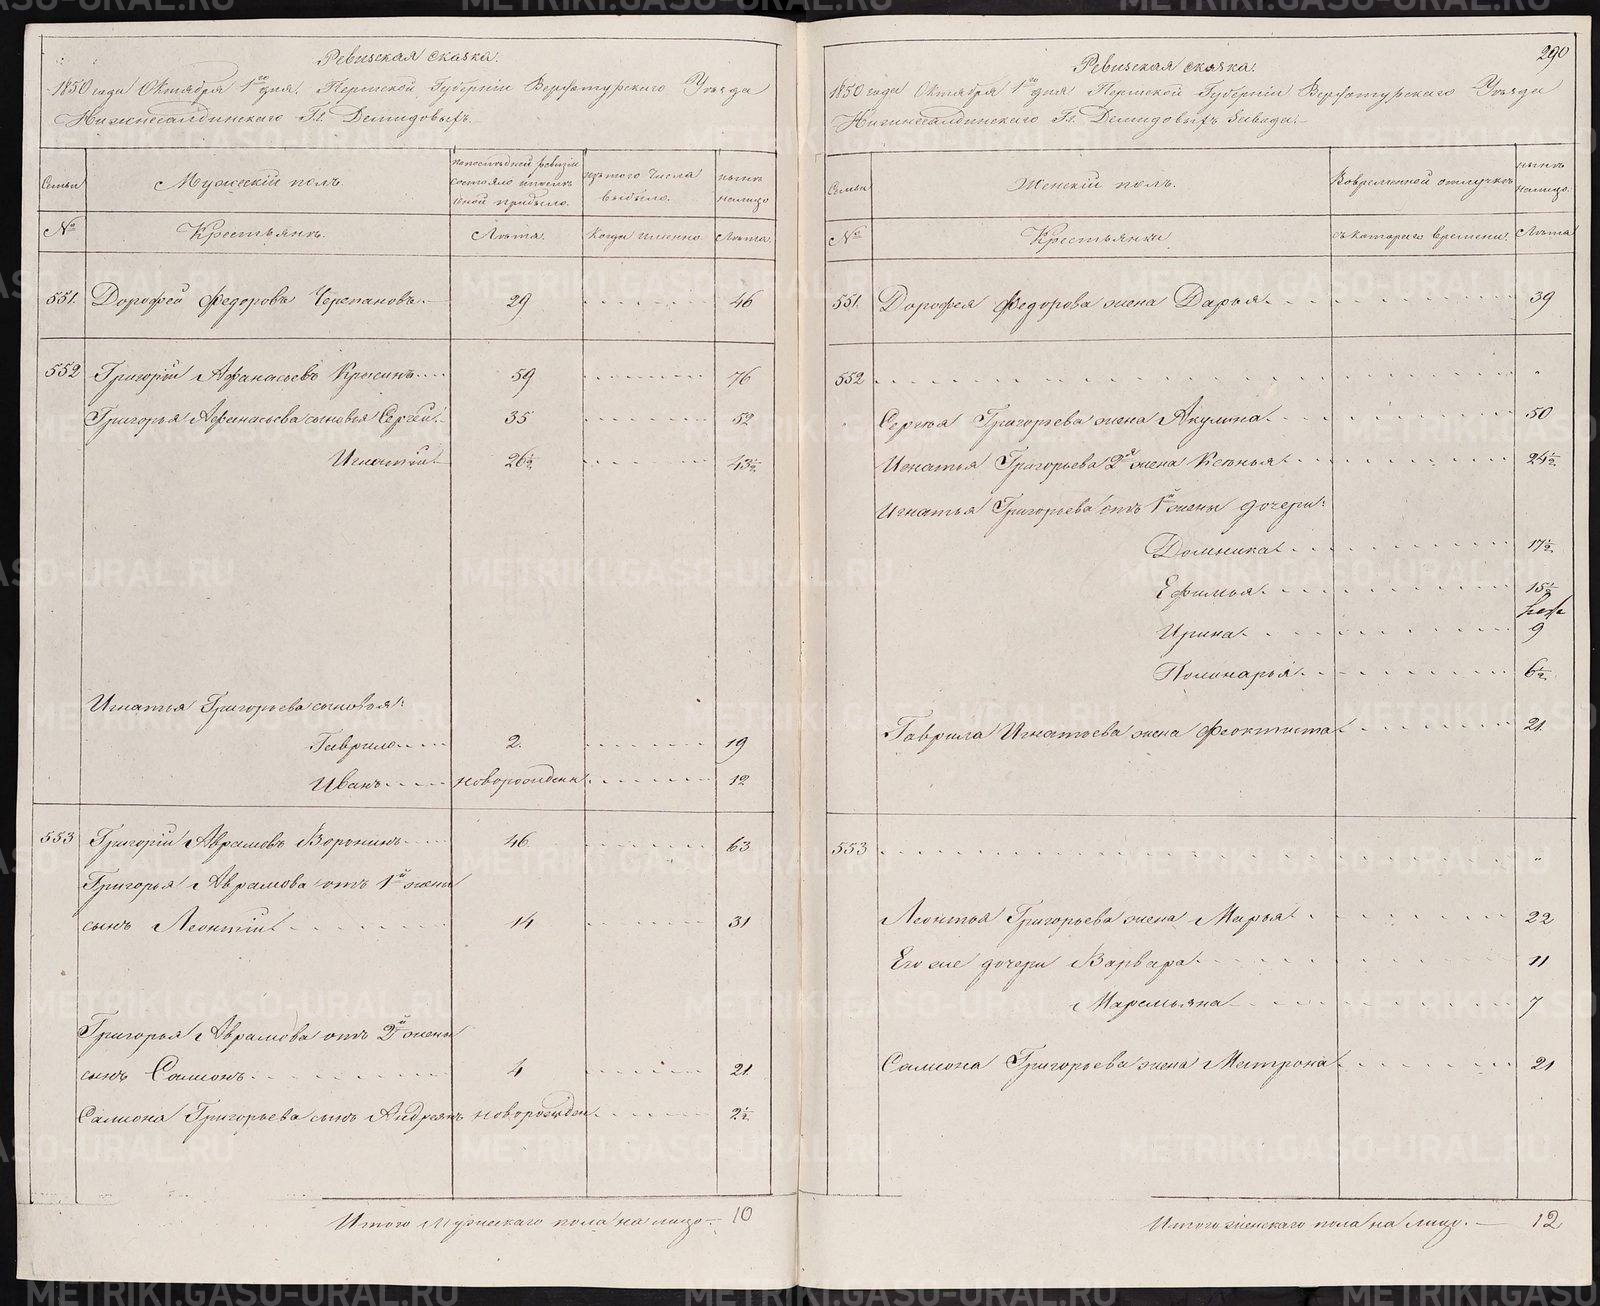 Ревизская сказка.
1850 года Октября 1го дня. Пермской Губерніи Верхотурскаго Уѣзда
Нижнесалдинскаго Гг. Демидовыхъ.
Семьи
Мужескій полъ.
по последней ревизіи
состояло и после
оной прибыло.
изъ того числа
выбыло.
нынѣ
на лицо
№
Крестьянъ.
Лѣта.
Когда именно.
Лѣта.
551. Дорофей Федоровъ Черепановъ. 29 46
552 Григорій Афанасьевъ Крысинъ 59 76
Григорья Афанасьева сыновья Сергей. 35 52
Игнатій 26½ 43½
Игнатья Григорьева сыновья:
Гаврило 2. 19
Иванъ новорожденъ 12
553 Григорій Аврамовъ Воронинъ 46. 63
Григорья Аврамова отъ 1й жены
сынъ Леонтій 14 31
Григорья Аврамова отъ 2й жены
сынъ Самсонъ. 4 21
Самсона Григорьева сынъ Андреянъ новорожден. 2½
Итого Мужескаго пола на лицо. — 10
290
Ревизская сказка.
1850 года Октября 1го дня Пермской Губерніи Верхотурскаго Уѣзда
Нижнесалдинскаго Гг. Демидовыхъ Завода.
Семьи
Женскій полъ.
Во временной отлучкѣ
нынѣ
на лицо.
№
Крестьянки
съ котораго времени.
Лѣта
551. Дорофея Федорова жена Дарья. 39
552 "
Сергея Григорьева жена Акулина. 50
Игнатья Григорьева 2й жена Ксенья. 24½
Игнатья Григорьева отъ 1й жены дочери:
Домника. 17½
Ефимья. 15½
Ирина. 9
Полинарья. 6½
Гаврила Игнатьева жена Феоктиста 21.
553 "
Леонтья Григорьева жена Марья. 22
Его же дочери Варвара. 11
Маремьяна 7
Самсона Григорьева жена Матрона 21
Итого женскаго пола на лицо. — 12
METRIKI.GASO-URAL.RU